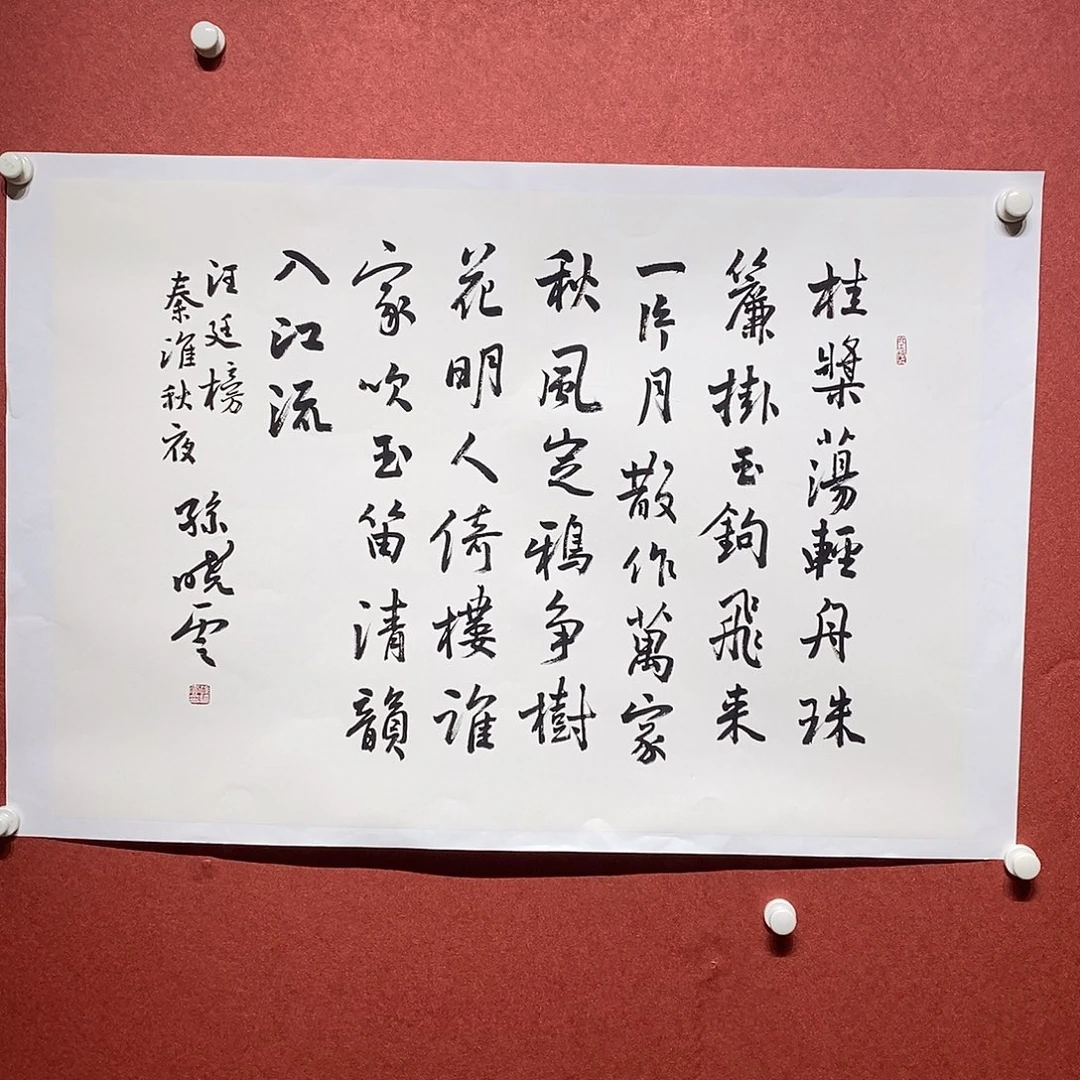 桂槳蕩輕舟珠
簾掛玉鉤飛来
一片月散作萬家
秋風定鴉争樹
花明人倚樓誰
家吹玉笛清韻
入江流
汪廷榜
秦淮秋夜 孫曉雲